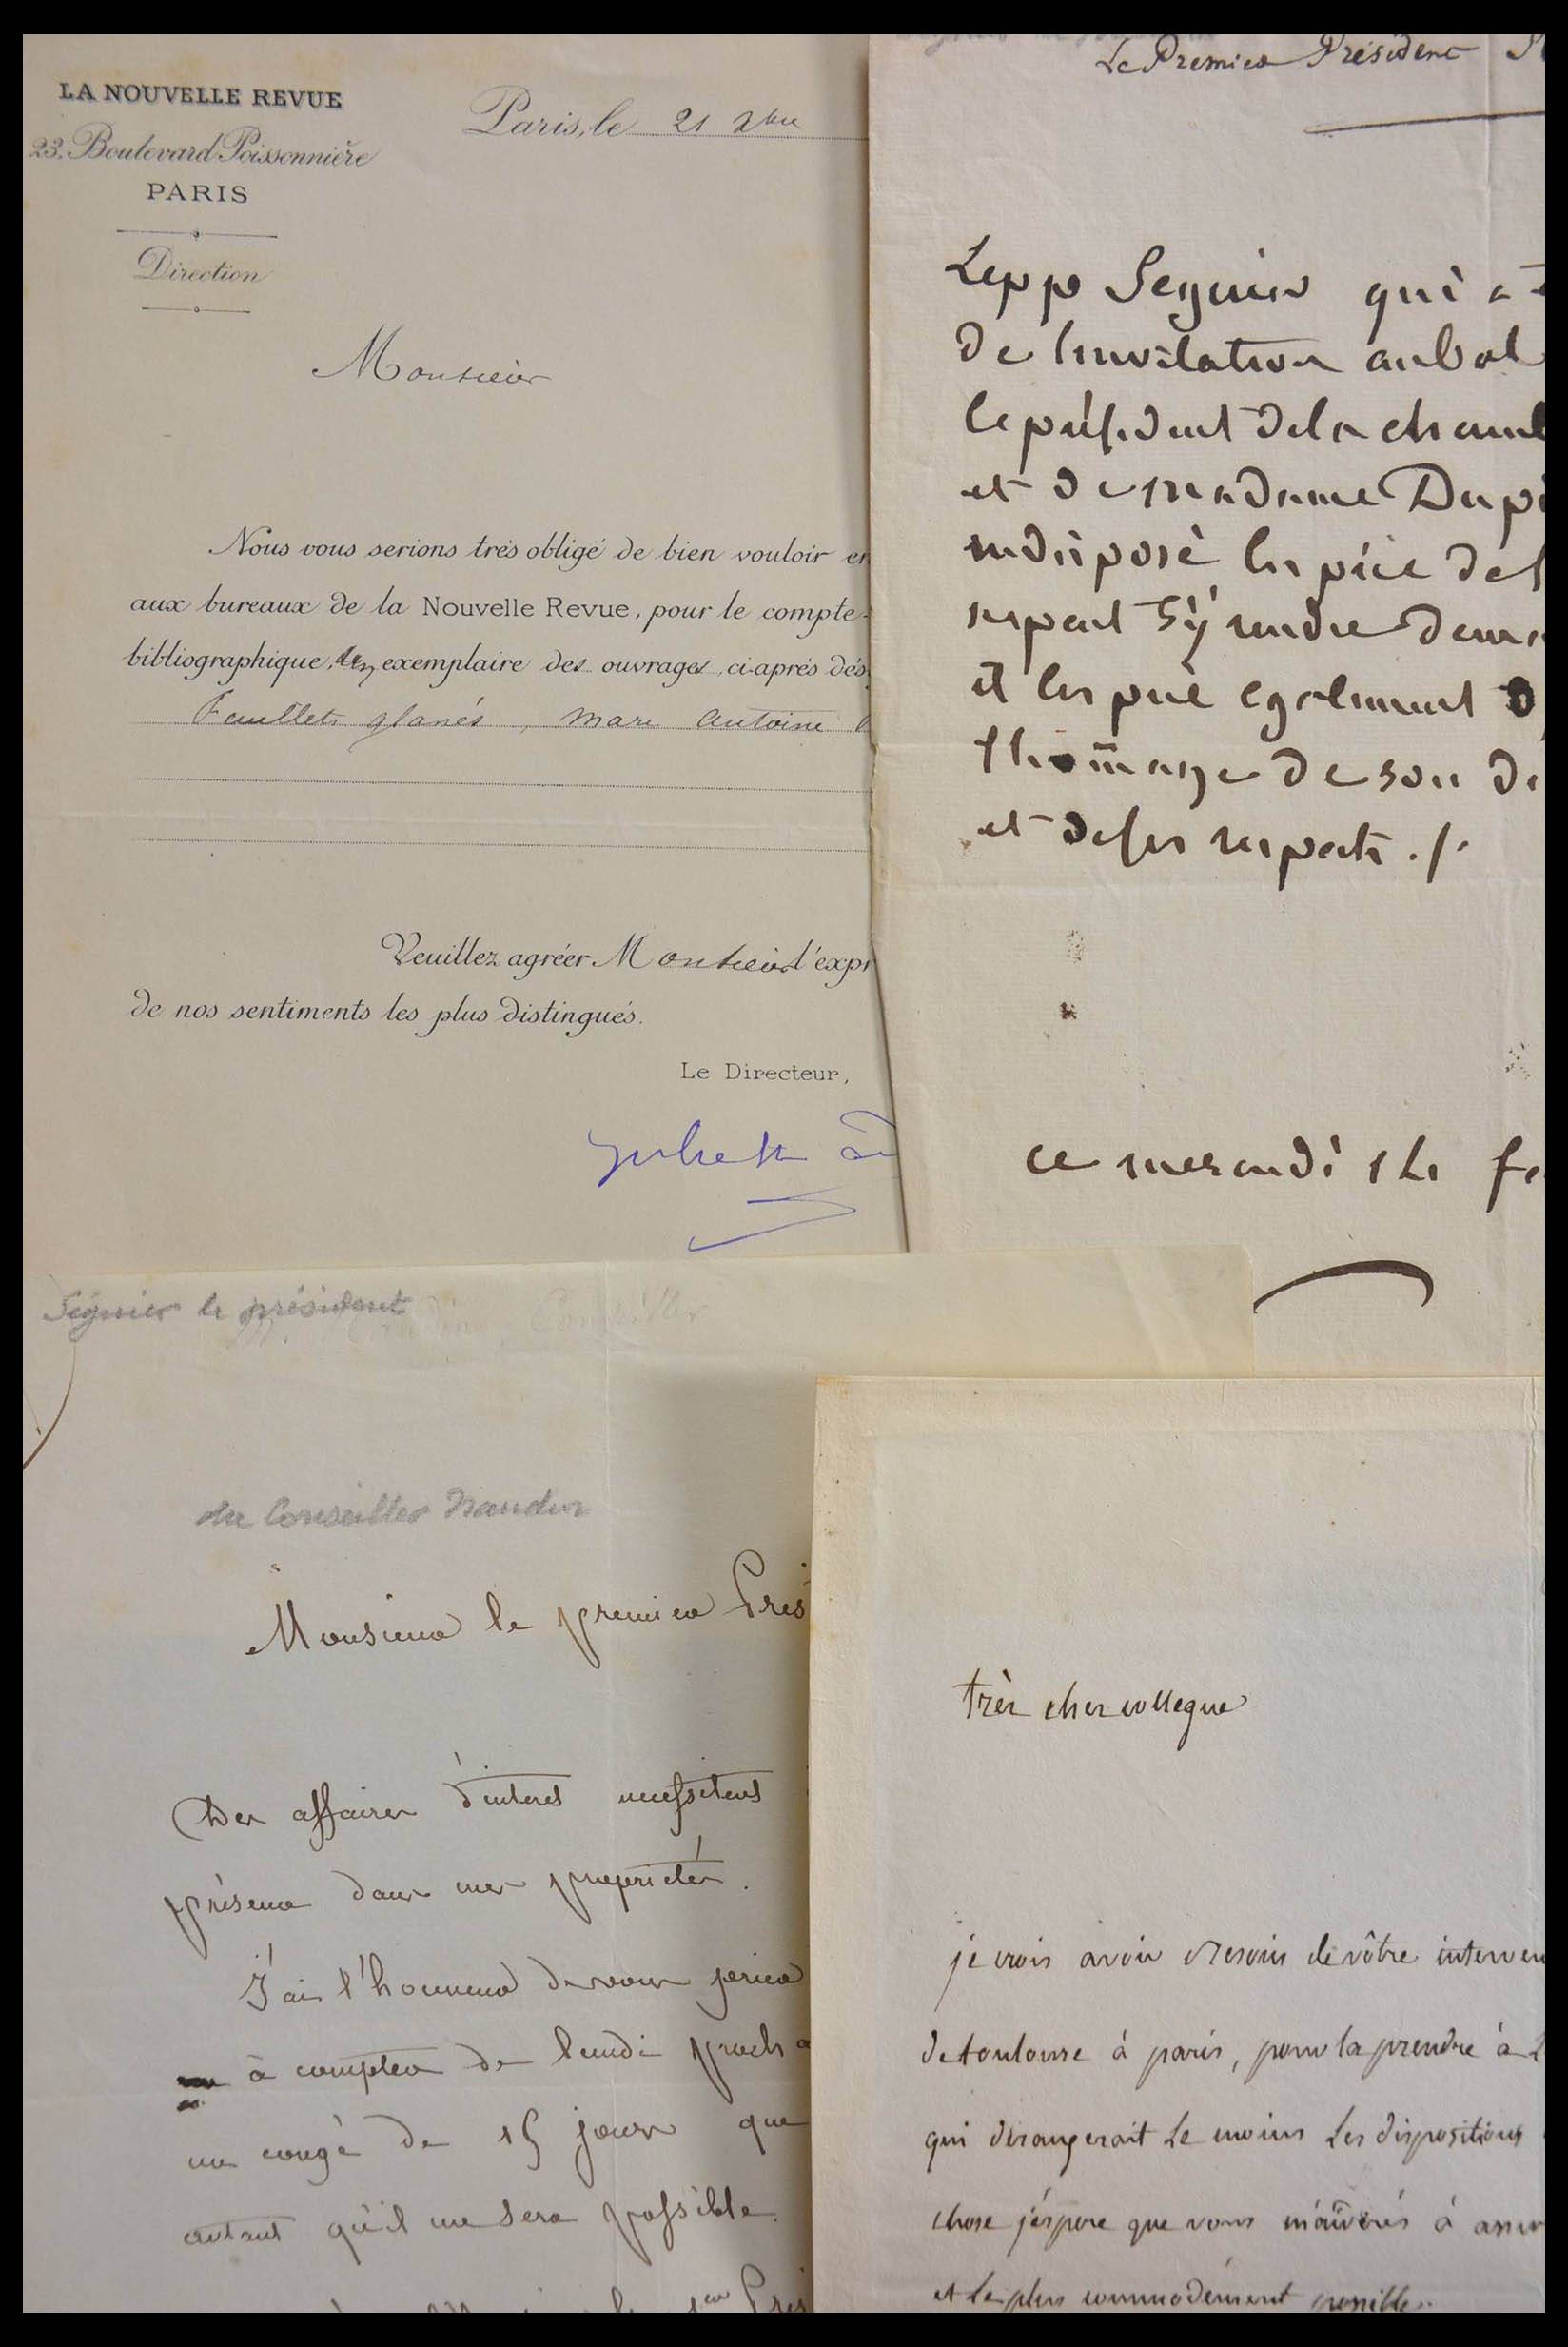 LA NOUVELLE REVUE
23, Boulevard Poissonnière
PARIS
Direction
Paris, le 21 Xbre
Monsieur
Nous vous serions très obligé de bien vouloir en
aux bureaux de la Nouvelle Revue, pour le compte-
bibliographique, un exemplaire des ouvrages, ci-après dés
Feuillets glanés, Marc Antoine
Veuillez agréer Monsieur l'expr
de nos sentiments les plus distingués.
Le Directeur,
Juliette Ad
Le Premier Président
Le pp Seguier qui a
de l'invitation au bal
le président de la chamb
et de madame Dupi
indisposé les prie de l
ne peut s'y rendre
et les prie egalement d
l'hom̄age de son
et de ses respects ./.
ce mercredi 14 fe
Séguier le président
Conseiller
du Conseiller Naudin
Monsieur le premier Prés
Des affaires d'interet necessitent
présence dans mes propriétés.
J'ai l'honneur de vous prier
à compter de lundi proch
un congé de 15 jours que
autant qu'il me sera possible.
très cher collegue
je crois avoir besoin de vôtre interven
de toulouse à paris, pour la prendre à
qui dérangerait le moins les dispositions
chose j'éspere que vous m'aiderés à
et le plus commodément possible.